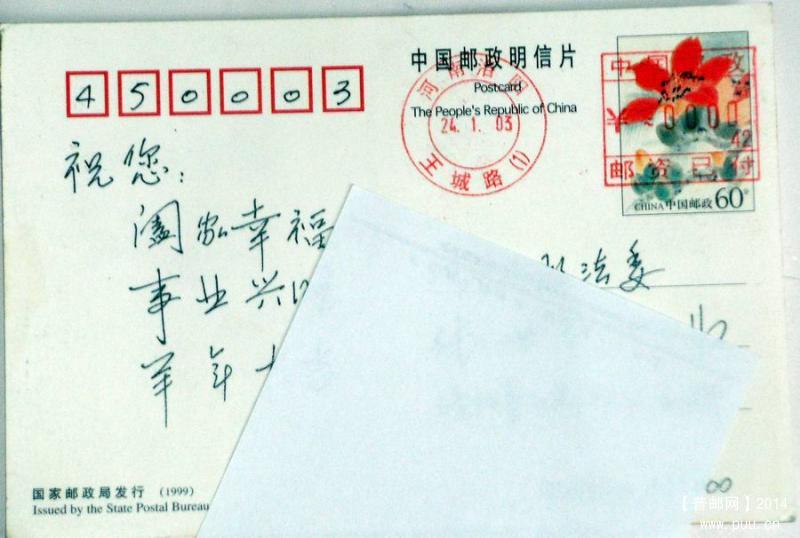 中国邮政明信片
Postcard
The People's Republic of China
450003
河南洛阳
24.1.03
王城路(1)
中国邮政
¥≈0000
42
邮资已付
CHINA中国邮政 60
祝您:
阖家幸福
事业兴
羊年大
法委
国家邮政局发行 (1999)
Issued by the State Postal Bureau
【普邮网】2014
www.puu.cn